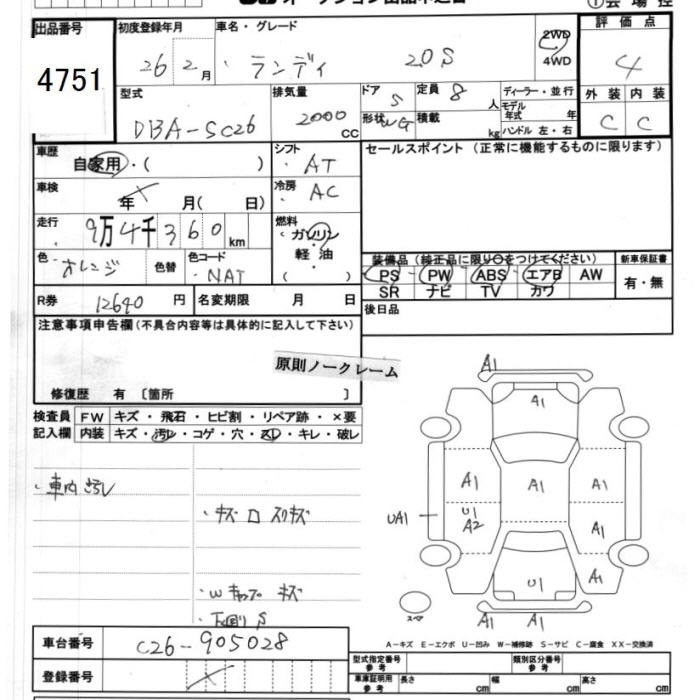 オークション出品申込書
①会場控
出品番号 初度登録年月 車名・グレード 2WD 4WD 評価点
4751 26 2月 ランディ 20S 4
型式 排気量 ドア 定員 ディーラー・並行 外装 内装
DBA-SC26 2000CC 5 8人 モデル年式 年 C C
形状 WG 積載 kg ハンドル 左・右
車歴 シフト セールスポイント(正常に機能するものに限ります)
自家用・( ) AT
車検 冷房
年 月( 日) AC
走行 燃料
9万4千360km ガソリン・軽油( )
色 オレンジ 色替 色コード NAT
装備品(純正品に限り○をつけてください) 新車保証書
PS PW ABS エアB AW 有・無
SR ナビ TV カワ
R券 12640円 名変期限 月 日
後日品
注意事項申告欄(不具合内容等は具体的に記入して下さい)
原則ノークレーム
修復歴 有〔箇所 〕
検査員 FW キズ・飛石・ヒビ割・リペア跡・×要
記入欄 内装 キズ・汚レ・コゲ・穴・スレ・キレ・破レ
・車内汚レ
・キズ ロ スリキズ
・Wキャップ キズ
・下廻りS
A1
A1
A1 A1 A1
UA1 U1 A2 A1
A1
U1
A1 A1
スペア
A-キズ E-エクボ U-凹み W-補修跡 S-サビ C-腐食 XX-交換済
車台番号 C26-905028
登録番号
型式指定番号 参考 類別区分番号 参考
車庫証明用 参考 長さ cm 幅 cm 高さ cm